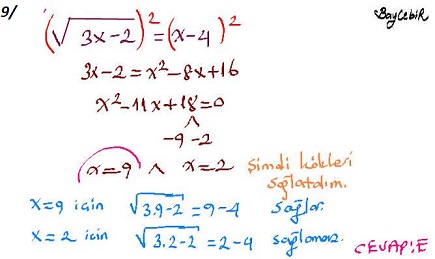 9/ (√3x-2)² = (x-4)² BayCebir
3x-2 = x²-8x+16
x²-11x+18=0
-9 -2
x=9 ∧ x=2 Şimdi kökleri
sağlatalım.
x=9 için √3.9-2 = 9-4 Sağlar.
x=2 için √3.2-2 = 2-4 sağlamaz.
CEVAP:E